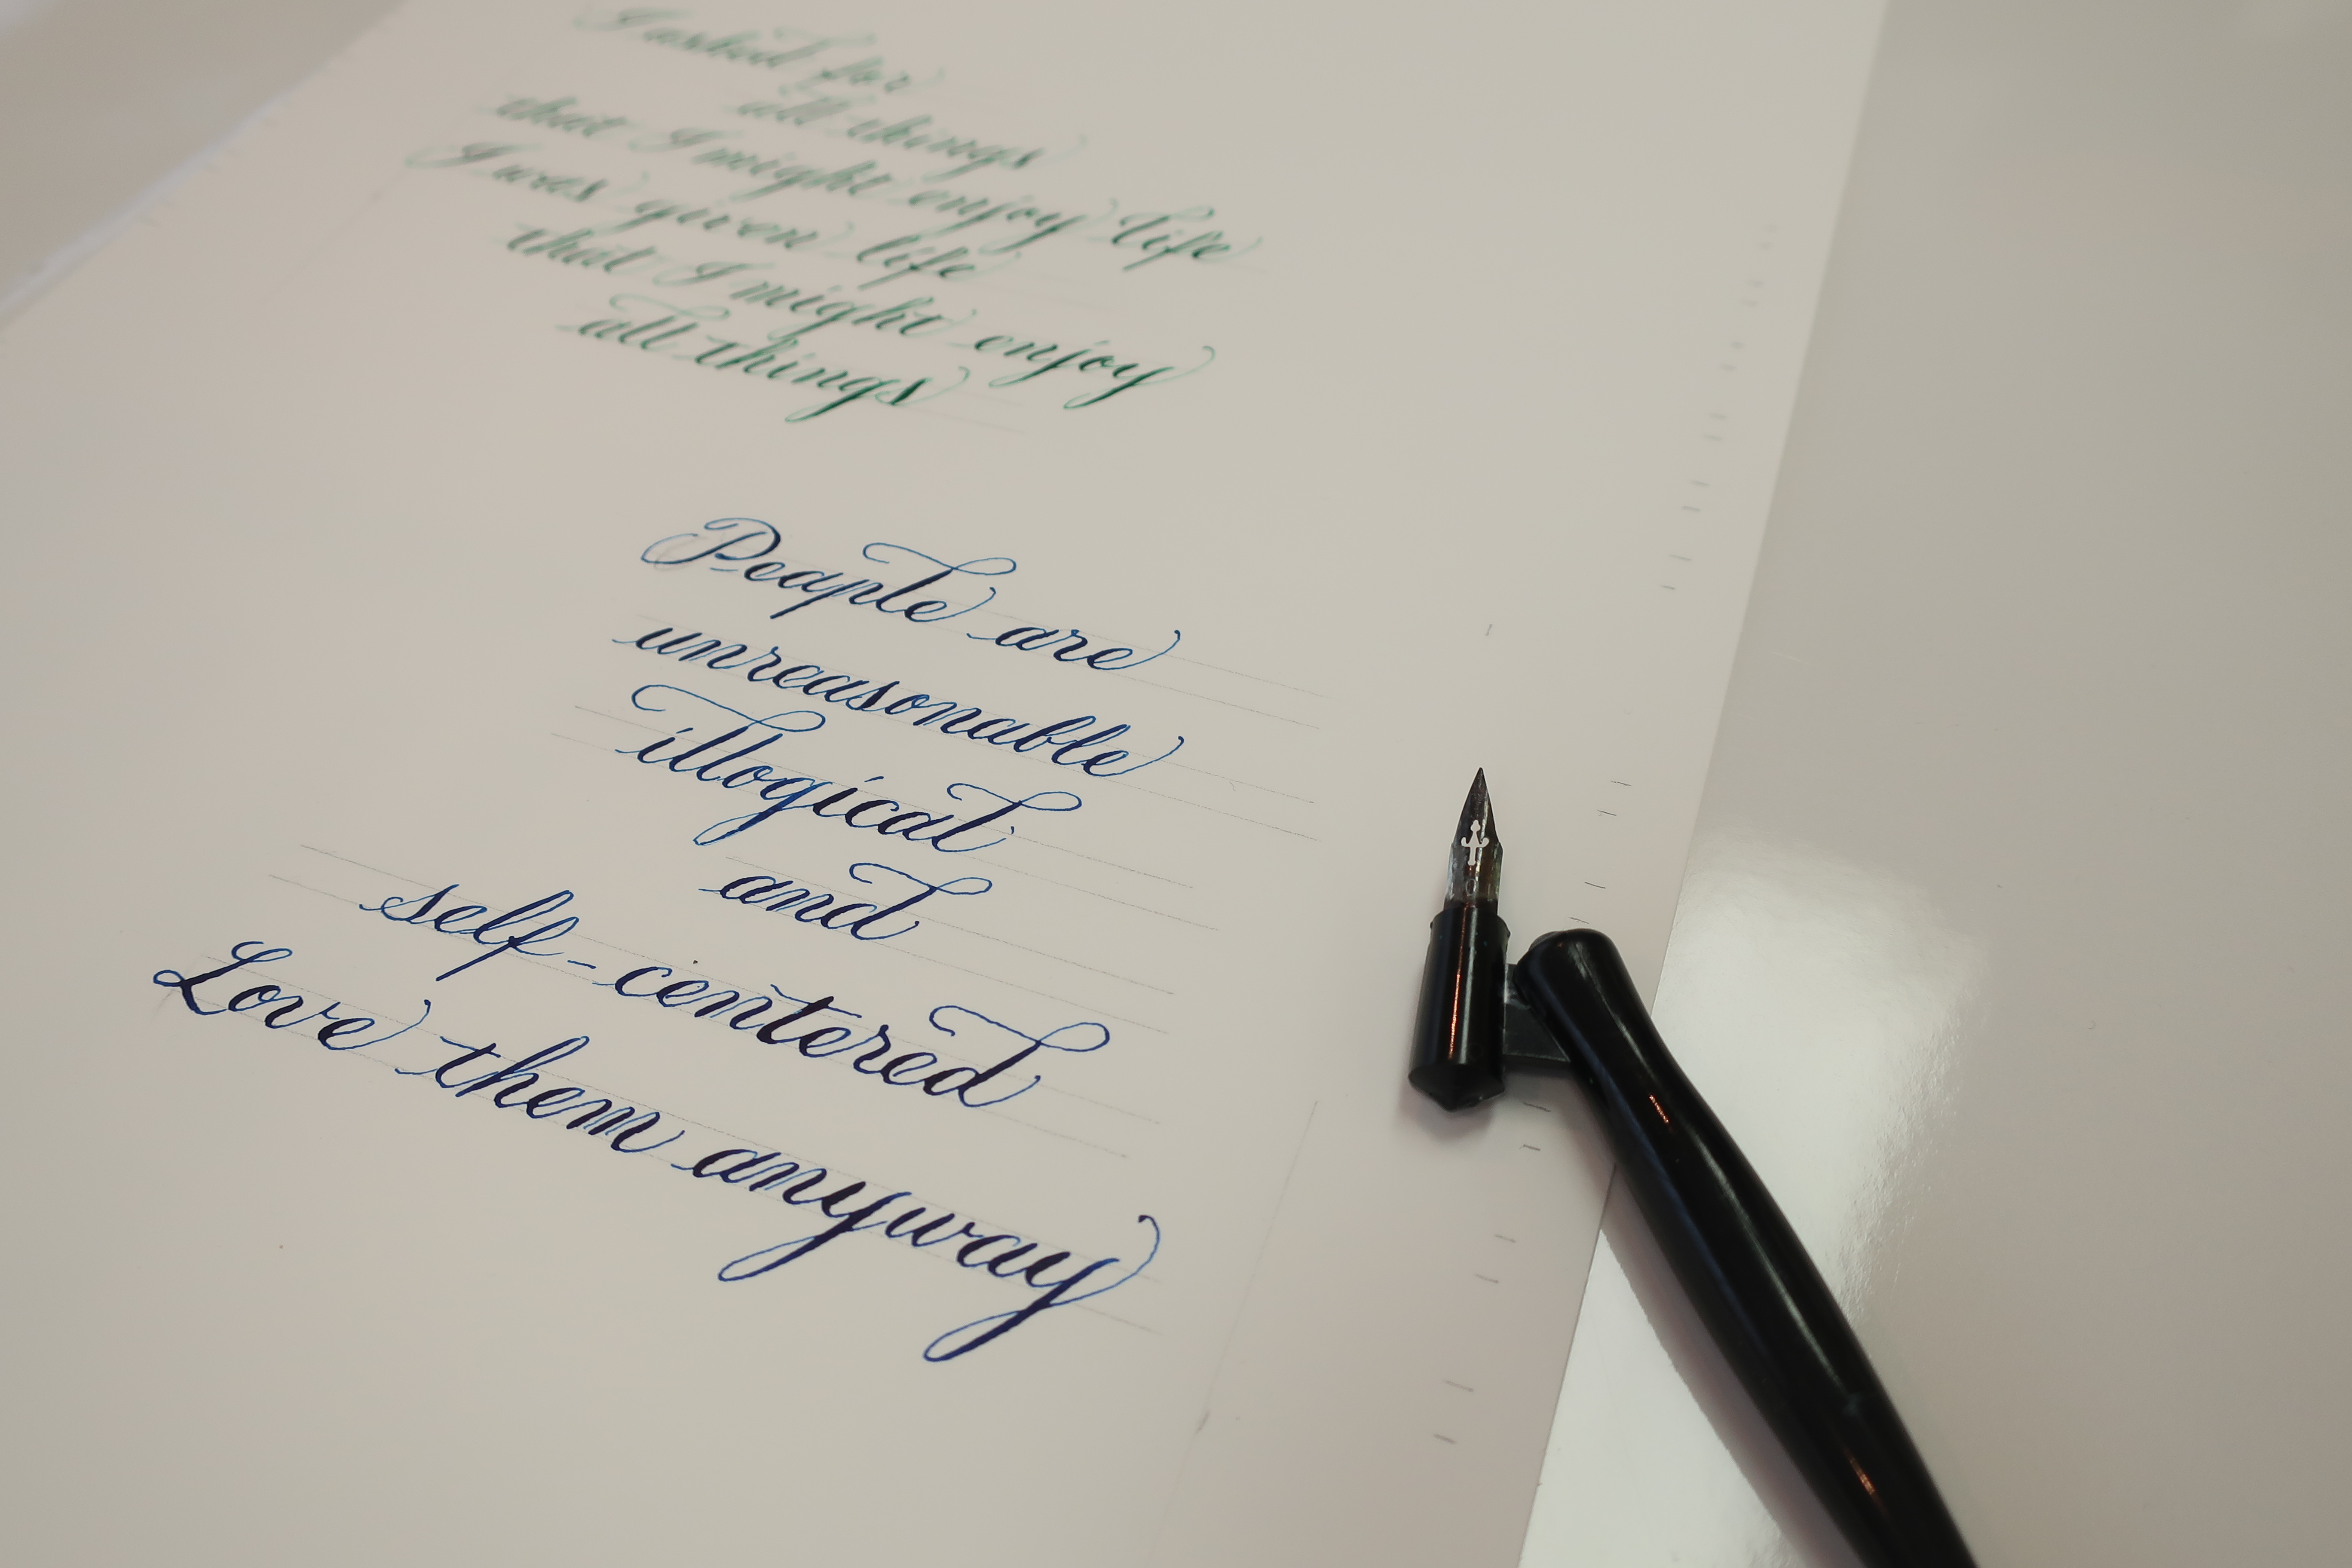 I asked for
all things
that I might enjoy life
I was given life
that I might enjoy
all things
People are
unreasonable
illogical
and
self-centered
Love them anyway